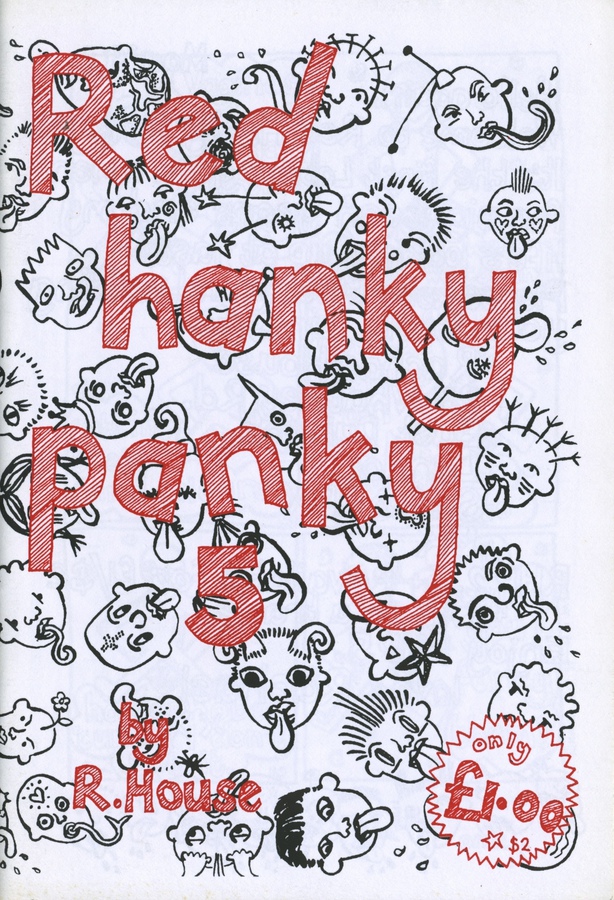 Red
hanky
panky
5
by
R.House
only
£1.00
$2